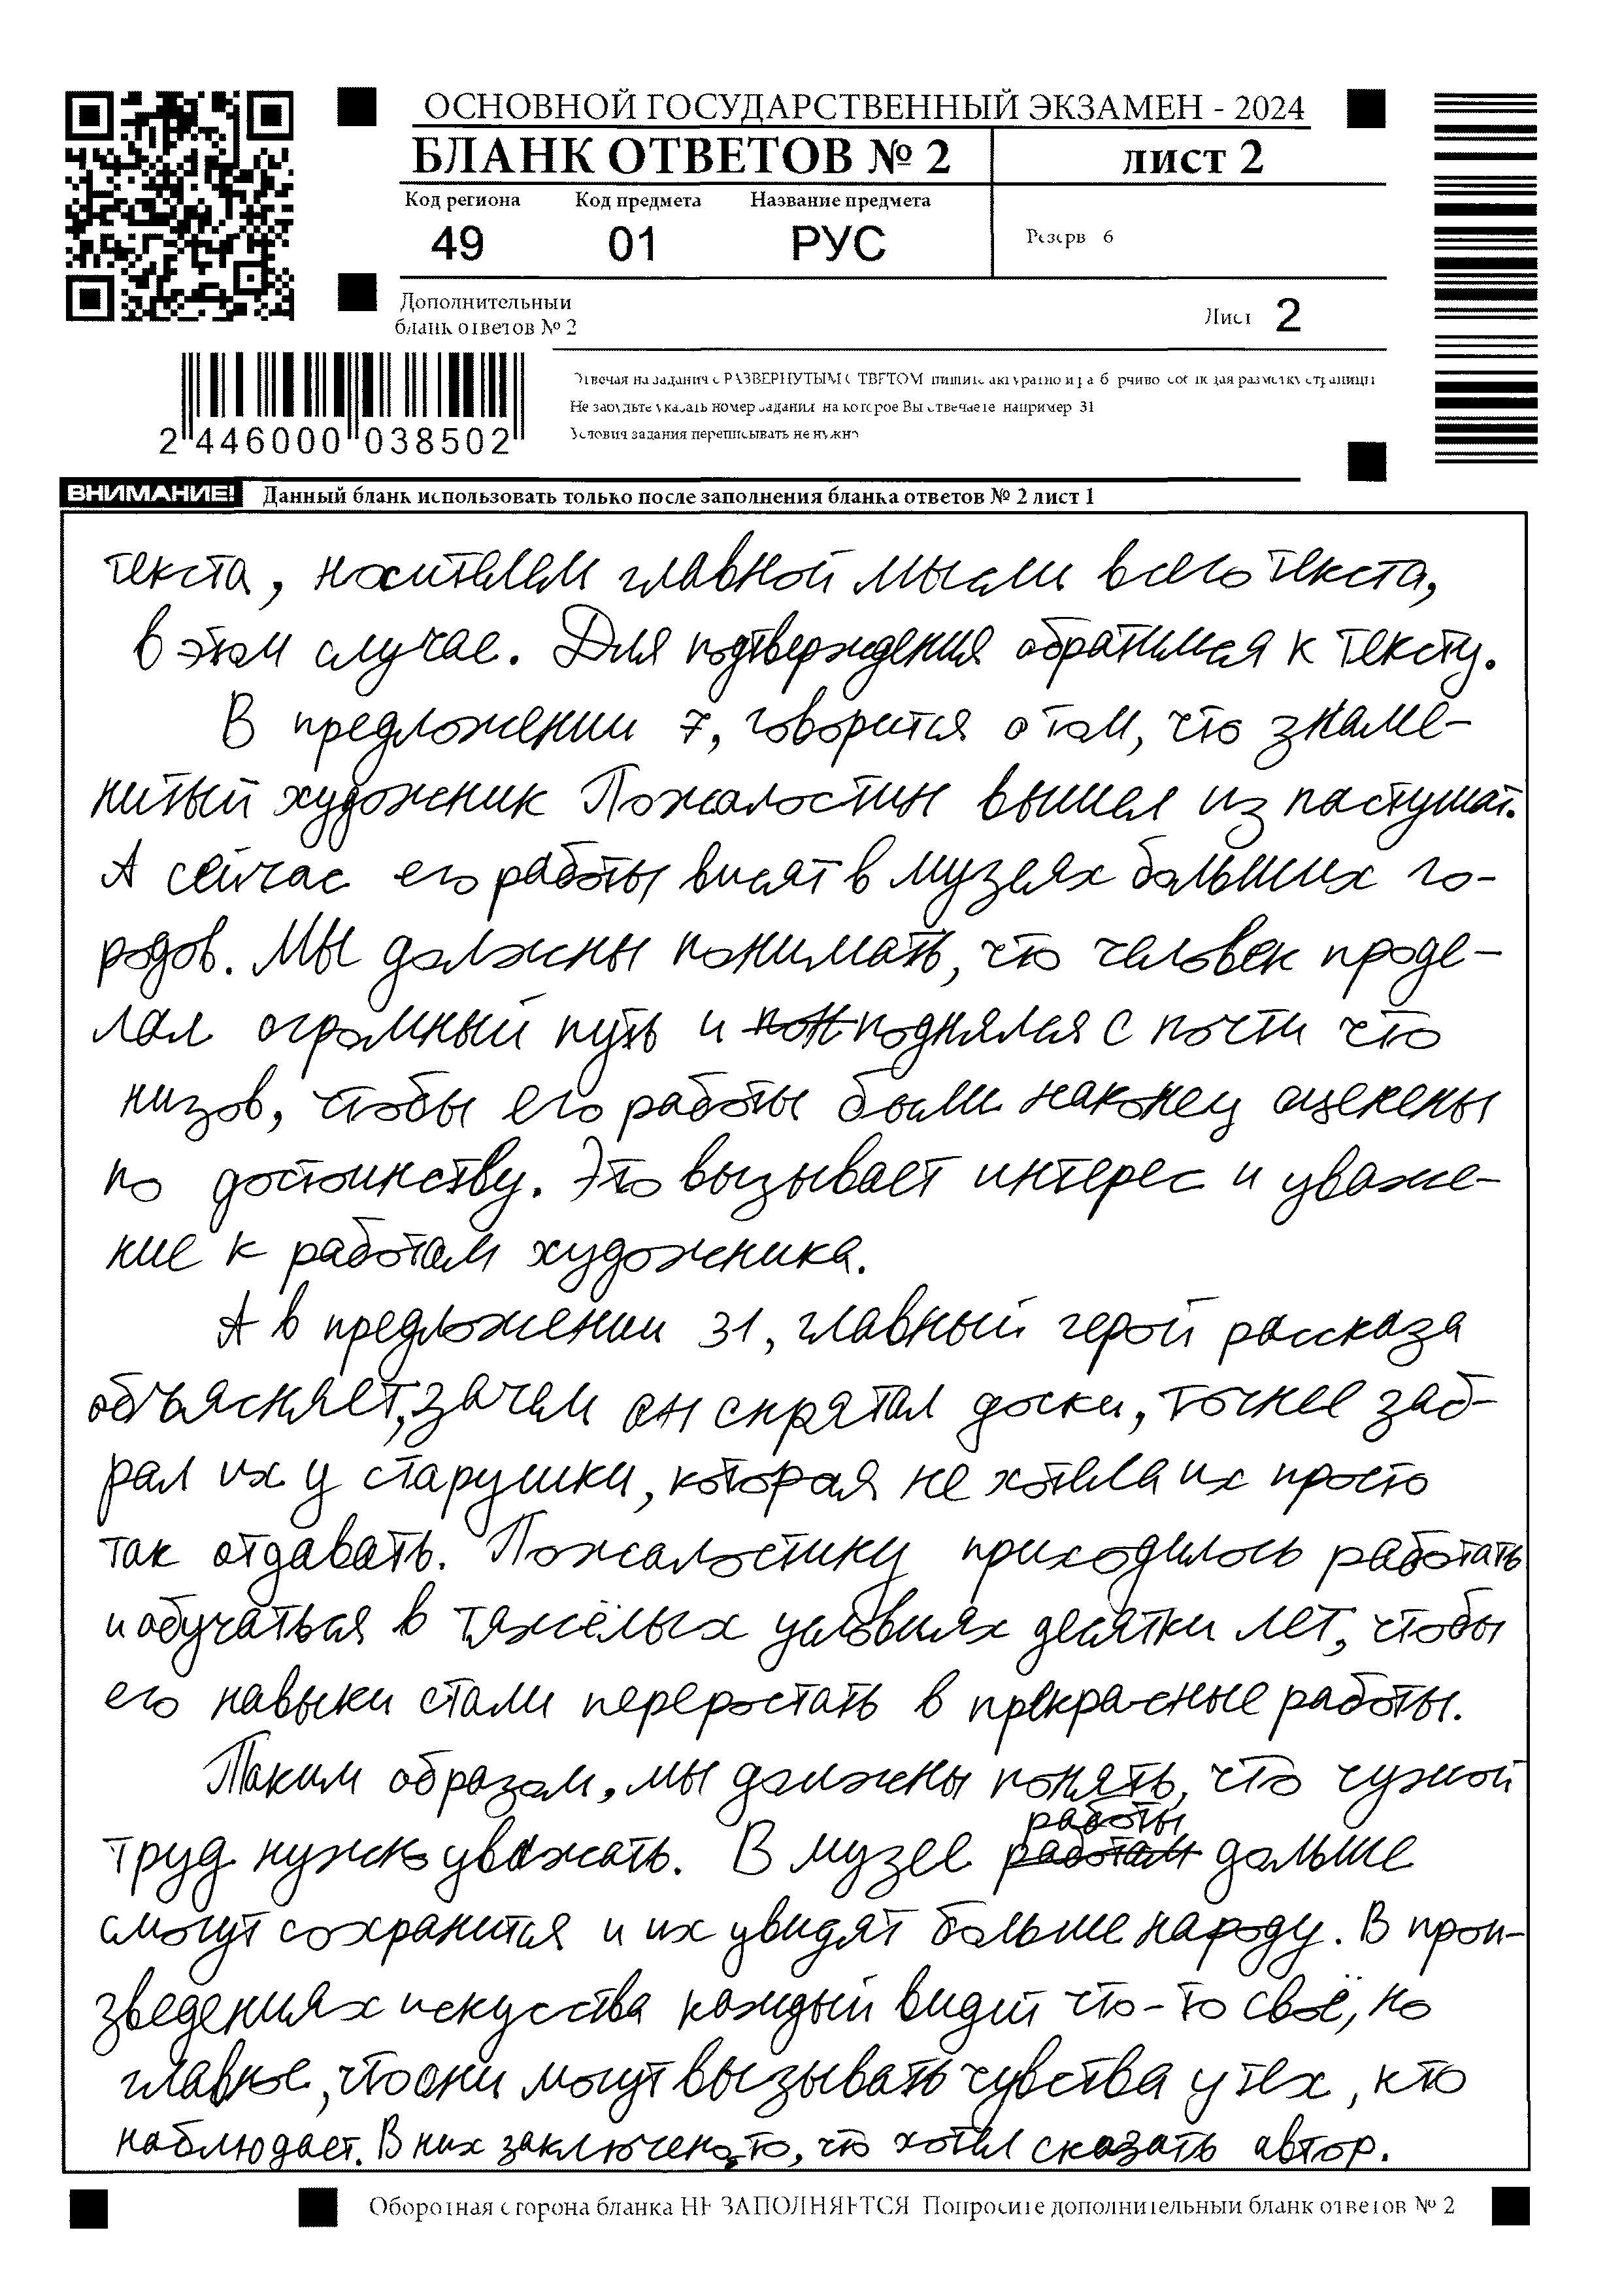 ОСНОВНОЙ ГОСУДАРСТВЕННЫЙ ЭКЗАМЕН - 2024
БЛАНК ОТВЕТОВ № 2 лист 2
Код региона Код предмета Название предмета
49 01 РУС Резерв 6
Дополнительный
бланк ответов № 2
Лист 2
Отвечая на задания с РАЗВЕРНУТЫМ ОТВЕТОМ пишите аккуратно и разборчиво соблюдая разметку страницы
Не забудьте указать номер задания на которое Вы отвечаете например 31
Условия задания переписывать не нужно
2 446000 038502
ВНИМАНИЕ! Данный бланк использовать только после заполнения бланка ответов № 2 лист 1
текста, носителем главной мысли всего текста,
в этом случае. Для подтверждения обратимся к тексту.
В предложении 7, говорится о том, что знаме-
нитый художник Пожалостин вышел из пастушат.
А сейчас его работы висят в музеях больших го-
родов. Мы должны понимать, что человек проде-
лал огромный путь и пон поднялся с почти что
низов, чтобы его работы были наконец оценены
по достоинству. Это вызывает интерес и уваже-
ние к работам художника.
А в предложении 31, главный герой рассказа
объясняет, зачем он спрятал доски, точнее заб-
рал их у старушки, которая не хотела их просто
так отдавать. Пожалостину приходилось работать
и обучаться в тяжёлых условиях десятки лет, чтобы
его навыки стали переростать в прекрасные работы.
Таким образом, мы должны понять, что чужой
работы
труд нужно уважать. В музее работам дольше
смогут сохранится и их увидят больше народу. В прои-
зведениях искусства каждый видит что-то своё, но
главное, что они могут вызывать чувства у тех, кто
наблюдает. В них заключено то, что хотел сказать автор.
Оборотная сторона бланка НЕ ЗАПОЛНЯЕТСЯ Попросите дополнительный бланк ответов № 2